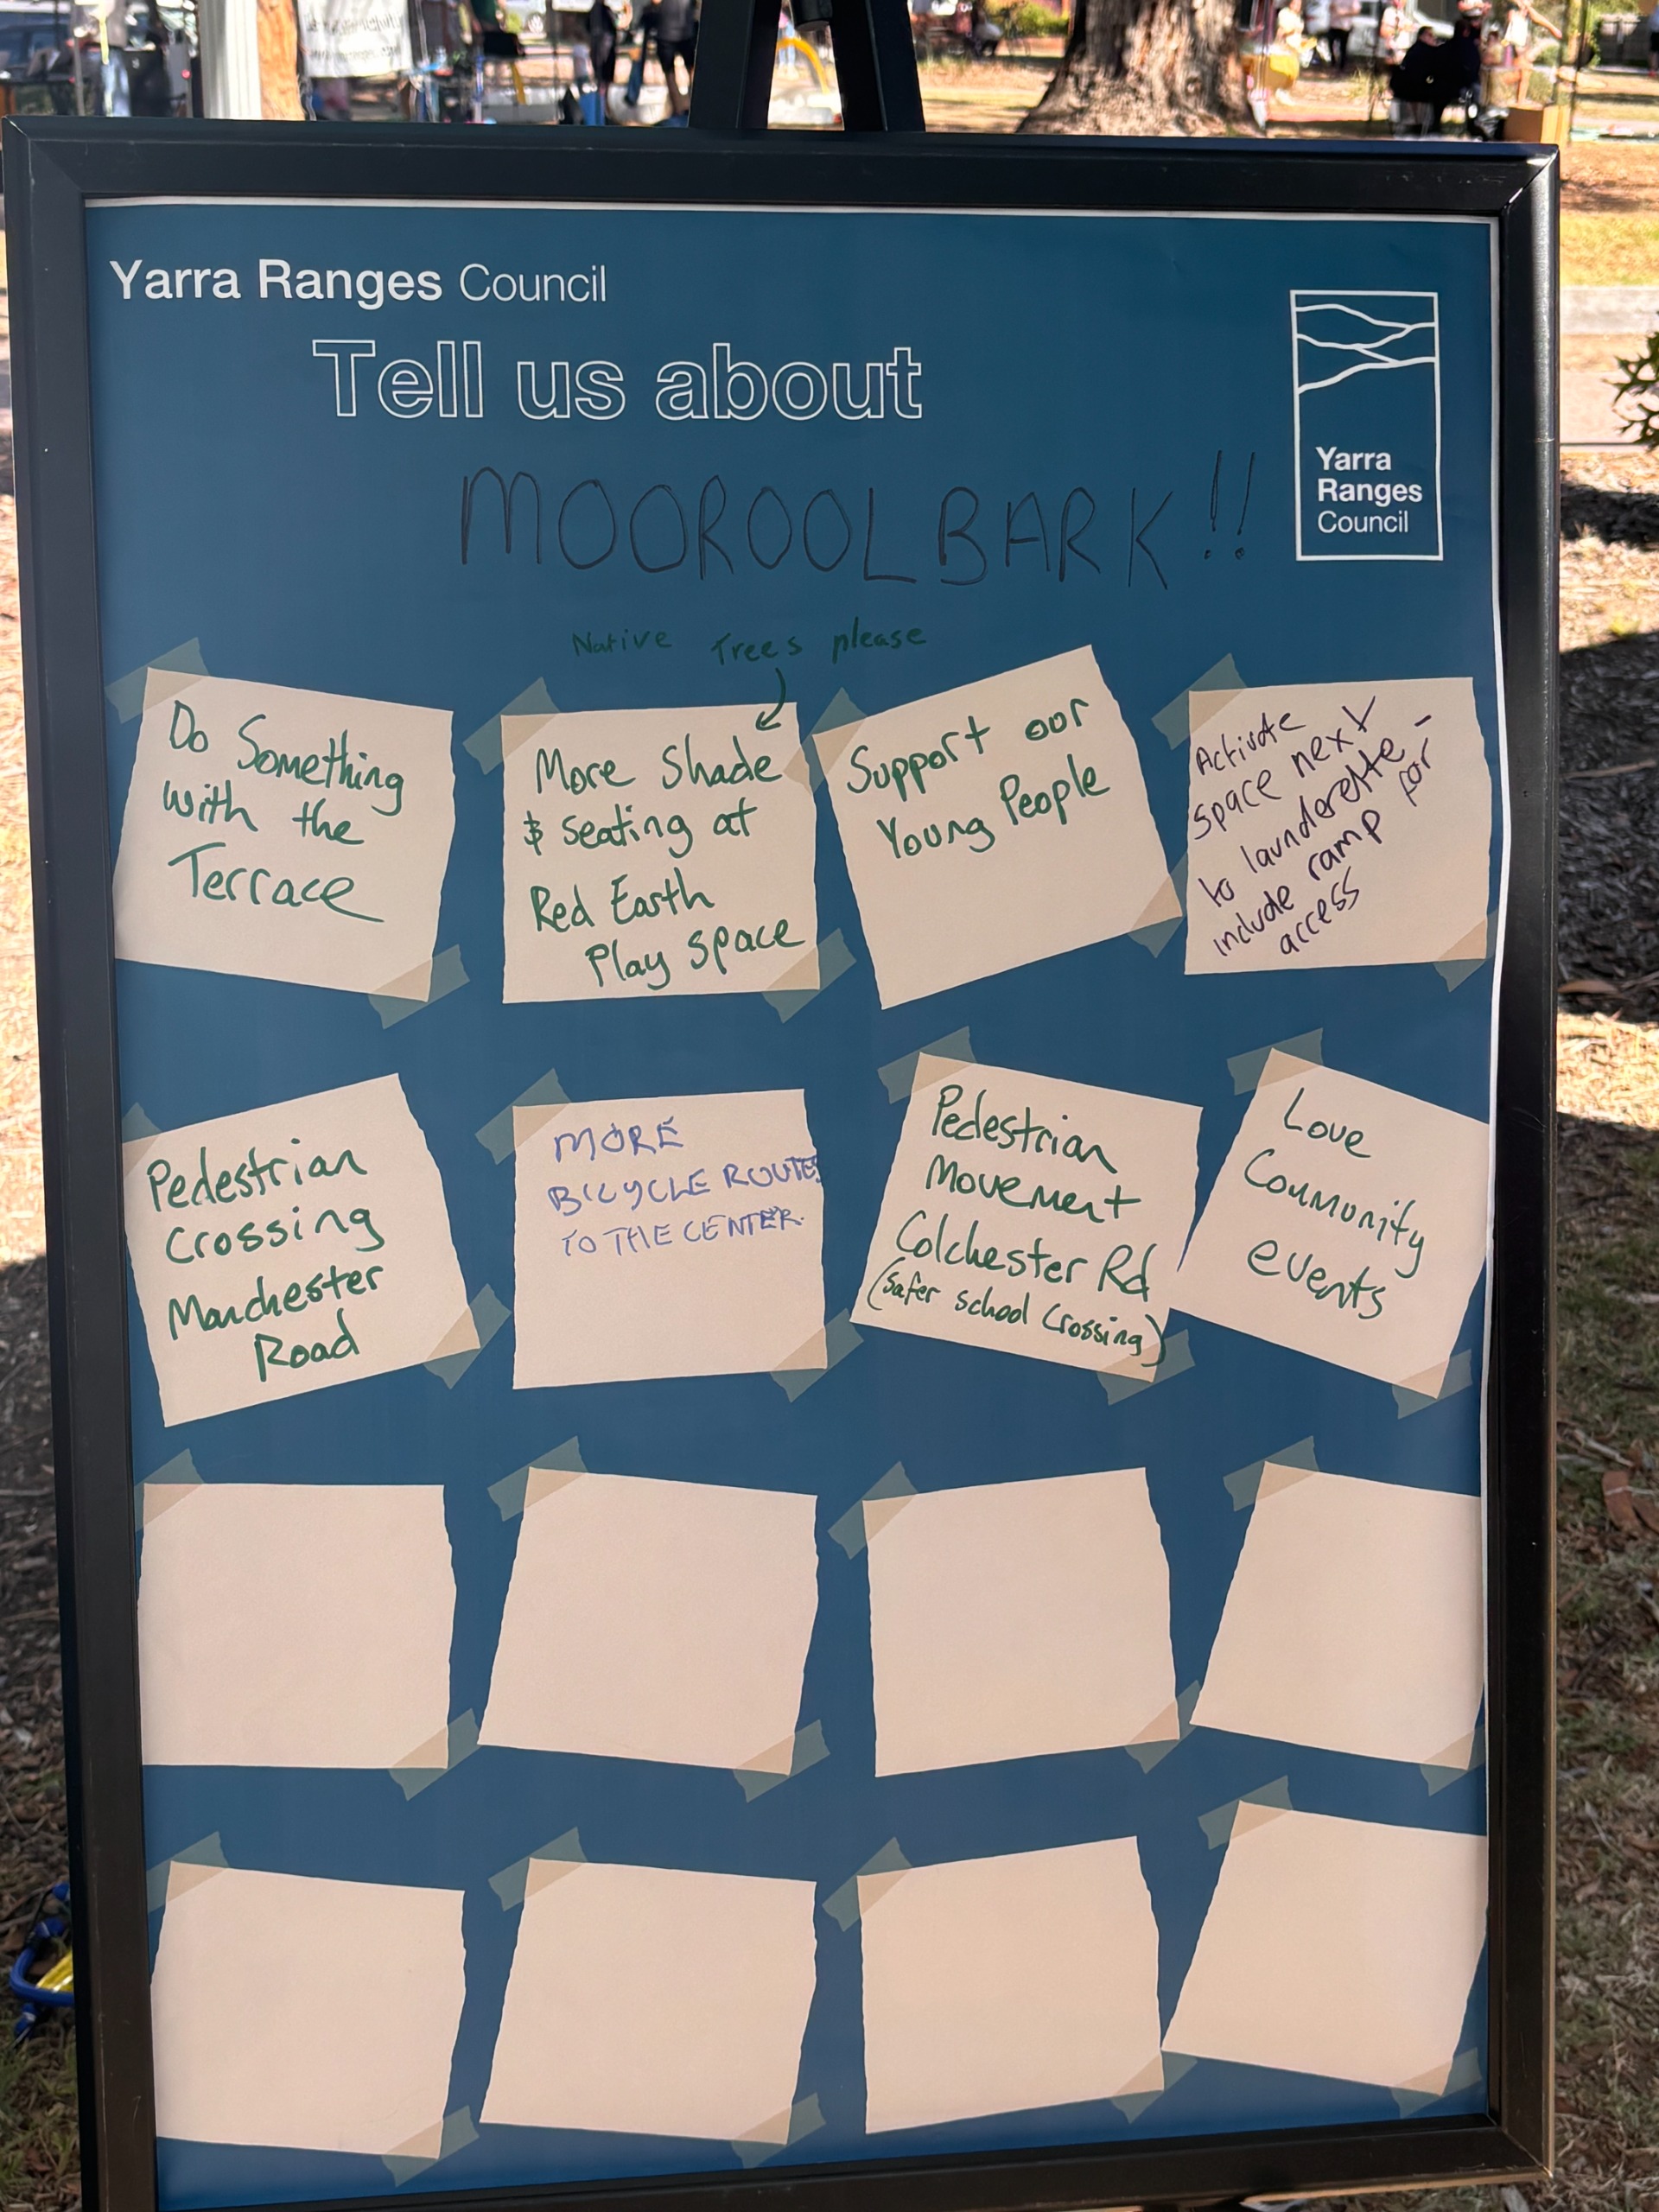 Yarra Ranges Council
Tell us about
MOOROOLBARK!!
Yarra
Ranges
Council
Native Trees please
Do Something
with the
Terrace
More Shade
& seating at
Red Earth
Play Space
Support our
Young People
Activate
space next
to launderette -
include ramp for
access
Pedestrian
Crossing
Manchester
Road
MORE
BICYCLE ROUTES
TO THE CENTER.
Pedestrian
Movement
Colchester Rd
(safer school crossing)
Love
Community
events